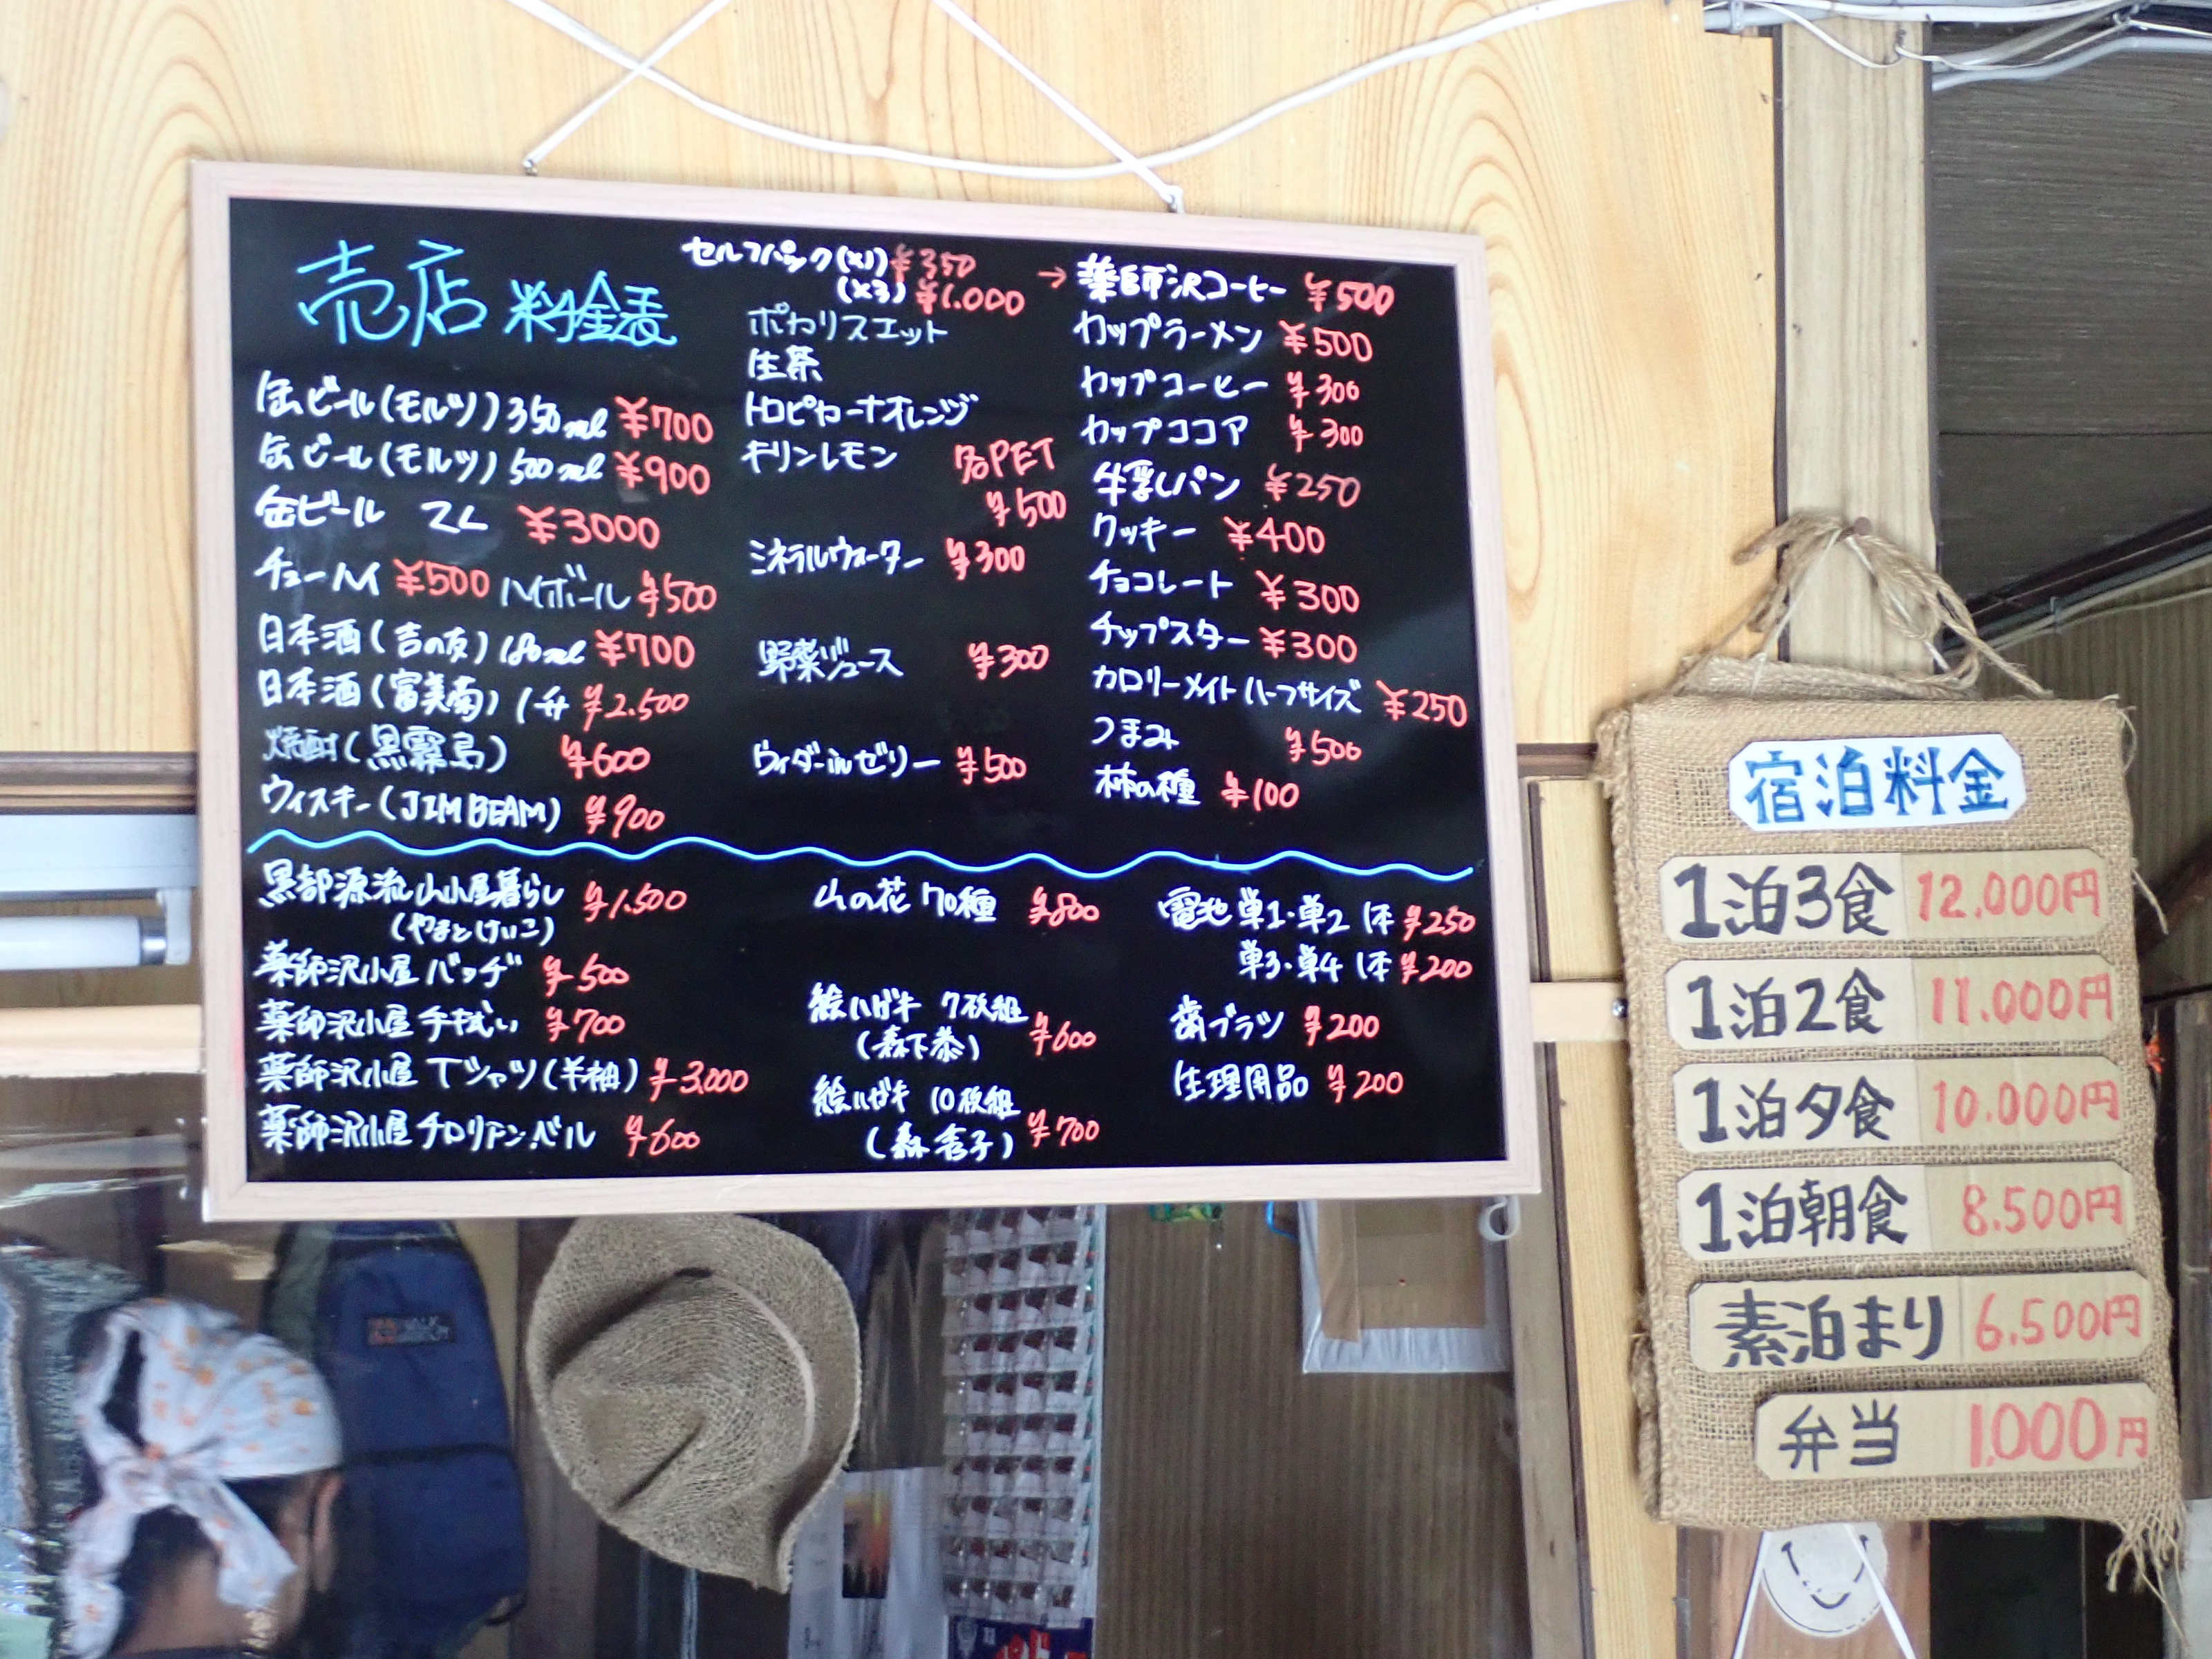 売店 料金表
缶ビール(モルツ)350ml ¥700
缶ビール(モルツ)500ml ¥900
缶ビール 2L ¥3000
チューハイ ¥500 ハイボール ¥500
日本酒(吉の友)180ml ¥700
日本酒(富美菊)1升 ¥2.500
焼酎(黒霧島) ¥600
ウィスキー(JIM BEAM) ¥900
セルフパック(×1) ¥350
(×3) ¥1.000
ポカリスエット
生茶
トロピカーナオレンヂ
キリンレモン 各PET
¥500
ミネラルウォーター ¥300
野菜ジュース ¥300
ウィダーinゼリー ¥500
→ 薬師沢コーヒー ¥500
カップラーメン ¥500
カップコーヒー ¥300
カップココア ¥300
牛乳パン ¥250
クッキー ¥400
チョコレート ¥300
チップスター ¥300
カロリーメイトハーフサイズ ¥250
つまみ ¥500
柿の種 ¥100
黒部源流山小屋暮らし ¥1.500
(やまとけいこ)
薬師沢小屋 バッヂ ¥500
薬師沢小屋 手拭い ¥700
薬師沢小屋 Tシャツ(半袖) ¥3,000
薬師沢小屋 チロリアンベル ¥600
山の花 70種 ¥800
絵ハガキ 7枚組
(森下恭) ¥600
絵ハガキ 10枚組
(森 秀子) ¥700
電池 単1・単2 1本 ¥250
単3・単4 1本 ¥200
歯ブラシ ¥200
生理用品 ¥200
宿泊料金
1泊3食 12.000円
1泊2食 11.000円
1泊夕食 10.000円
1泊朝食 8.500円
素泊まり 6.500円
弁当 1,000円